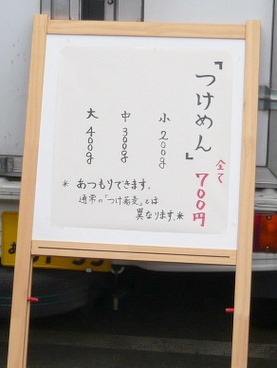 『つけめん』
全て
700円
小 200g
中 300g
大 400g
* あつもりできます。
通常の「つけ蕎麦」とは
異なります。*